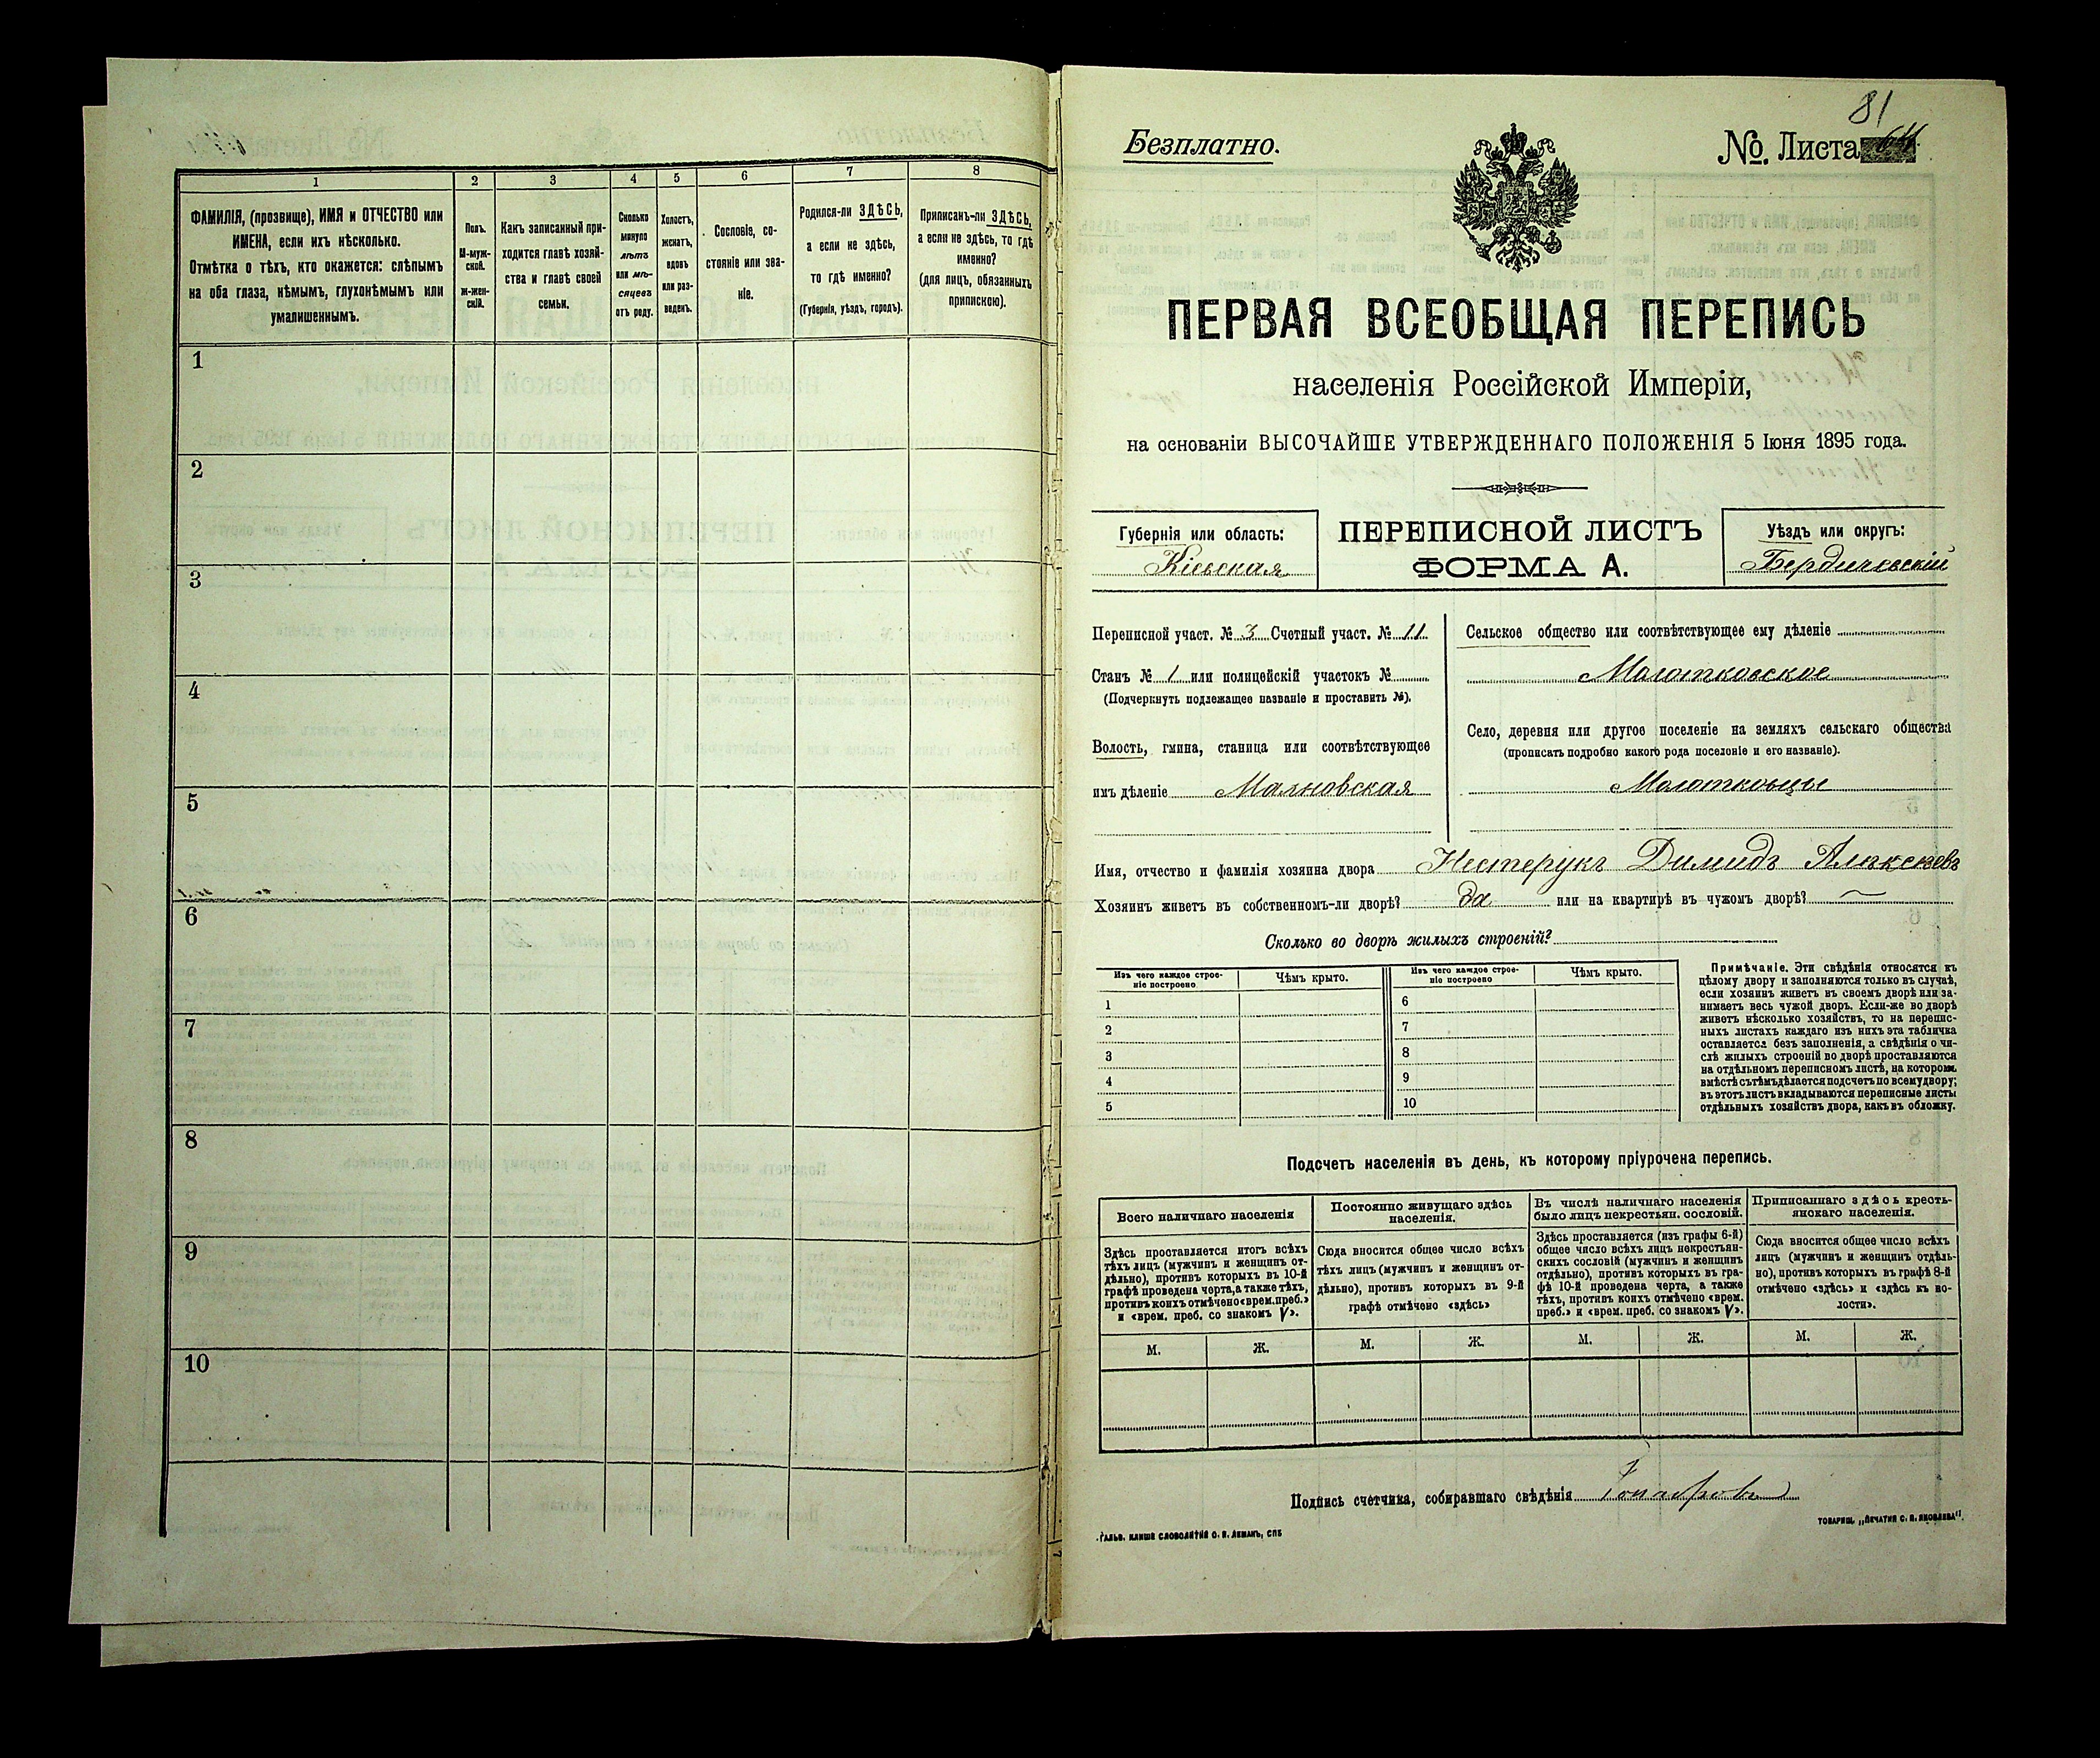 1
2
3
4
5
6
7
8
ФАМИЛІЯ, (прозвище), ИМЯ и ОТЧЕСТВО или
ИМЕНА, если ихъ нѣсколько.
Отмѣтка о тѣхъ, кто окажется: слѣпымъ
на оба глаза, нѣмымъ, глухонѣмымъ или
умалишеннымъ.
Полъ.
М-муж-
ской.
ж-жен-
скій.
Какъ записанный при-
ходится главѣ хозяй-
ства и главѣ своей
семьи.
Сколько
минуло
лѣтъ
или мѣ-
сяцевъ
отъ роду.
Холостъ,
женатъ,
вдовъ
или раз-
веденъ.
Сословіе, со-
стояніе или зва-
ніе.
Родился-ли ЗДѢСЬ,
а если не здѣсь,
то гдѣ именно?
(Губернія, уѣздъ, городъ).
Приписанъ-ли ЗДѢСЬ,
а если не здѣсь, то гдѣ
именно?
(для лицъ, обязанныхъ
припискою).
1
2
3
4
5
6
7
8
9
10
81
Безплатно.
№. Листа
ПЕРВАЯ ВСЕОБЩАЯ ПЕРЕПИСЬ
населенія Россійской Имперіи,
на основаніи ВЫСОЧАЙШЕ УТВЕРЖДЕННАГО ПОЛОЖЕНІЯ 5 Іюня 1895 года.
Губернія или область:
Кіевская
ПЕРЕПИСНОЙ ЛИСТЪ
ФОРМА А.
Уѣздъ или округъ:
Бердичевскій
Переписной участ. № 3 Счетный участ. № 11
Станъ № 1 или полицейскій участокъ №
(Подчеркнуть подлежащее названіе и проставить №).
Волость, гмина, станица или соотвѣтствующее
имъ дѣленіе Махновская
Сельское общество или соотвѣтствующее ему дѣленіе
Молотковское
Село, деревня или другое поселеніе на земляхъ сельскаго общества
(прописать подробно какого рода поселеніе и его названіе).
Молотковцы
Имя, отчество и фамилія хозяина двора Нестерукъ Димидъ Алексѣевъ
Хозяинъ живетъ въ собственномъ-ли дворѣ? да или на квартирѣ въ чужомъ дворѣ? —
Сколько во дворѣ жилыхъ строеній?
Изъ чего каждое строе-
ніе построено
Чѣмъ крыто.
Изъ чего каждое строе-
ніе построено
Чѣмъ крыто.
1
2
3
4
5
6
7
8
9
10
Примѣчаніе. Эти свѣдѣнія относятся къ
цѣлому двору и заполняются только въ случаѣ,
если хозяинъ живетъ въ своемъ дворѣ или за-
нимаетъ весь чужой дворъ. Если-же во дворѣ
живетъ нѣсколько хозяйствъ, то на перепис-
ныхъ листахъ каждаго изъ нихъ эта табличка
оставляется безъ заполненія, а свѣдѣнія о чи-
слѣ жилыхъ строеній во дворѣ проставляются
на отдѣльномъ переписномъ листѣ, на которомъ
вмѣстѣ съ тѣмъ дѣлается подсчетъ по всему двору;
въ этотъ листъ вкладываются переписные листы
отдѣльныхъ хозяйствъ двора, какъ въ обложку.
Подсчетъ населенія въ день, къ которому пріурочена перепись.
Всего наличнаго населенія
Здѣсь проставляется итогъ всѣхъ
тѣхъ лицъ (мужчинъ и женщинъ от-
дѣльно), противъ которыхъ въ 10-й
графѣ проведена черта, а также тѣхъ,
противъ коихъ отмѣчено «врем. преб.»
и «врем. преб. со знакомъ V».
Постоянно живущаго здѣсь
населенія.
Сюда вносится общее число всѣхъ
тѣхъ лицъ (мужчинъ и женщинъ от-
дѣльно), противъ которыхъ въ 9-й
графѣ отмѣчено «здѣсь»
Въ числѣ наличнаго населенія
было лицъ некрестьян. сословій.
Здѣсь проставляется (изъ графы 6-й)
общее число всѣхъ лицъ некрестьян-
скихъ сословій (мужчинъ и женщинъ
отдѣльно), противъ которыхъ въ гра-
фѣ 10-й проведена черта, а также
тѣхъ, противъ коихъ отмѣчено «врем.
преб.» и «врем. преб. со знакомъ V».
Приписаннаго здѣсь кресть-
янскаго населенія.
Сюда вносится общее число всѣхъ
лицъ (мужчинъ и женщинъ отдѣль-
но), противъ которыхъ въ графѣ 8-й
отмѣчено «здѣсь» и «здѣсь къ во-
лости».
М. Ж. М. Ж. М. Ж. М. Ж.
Подпись счетчика, собиравшаго свѣдѣнія
ГАЛЬВ. КЛИШЕ СЛОВОЛИТНИ О. И. ЛЕМАНЪ, СПБ
ТОВАРИЩ. „ПЕЧАТНЯ С. П. ЯКОВЛЕВА".